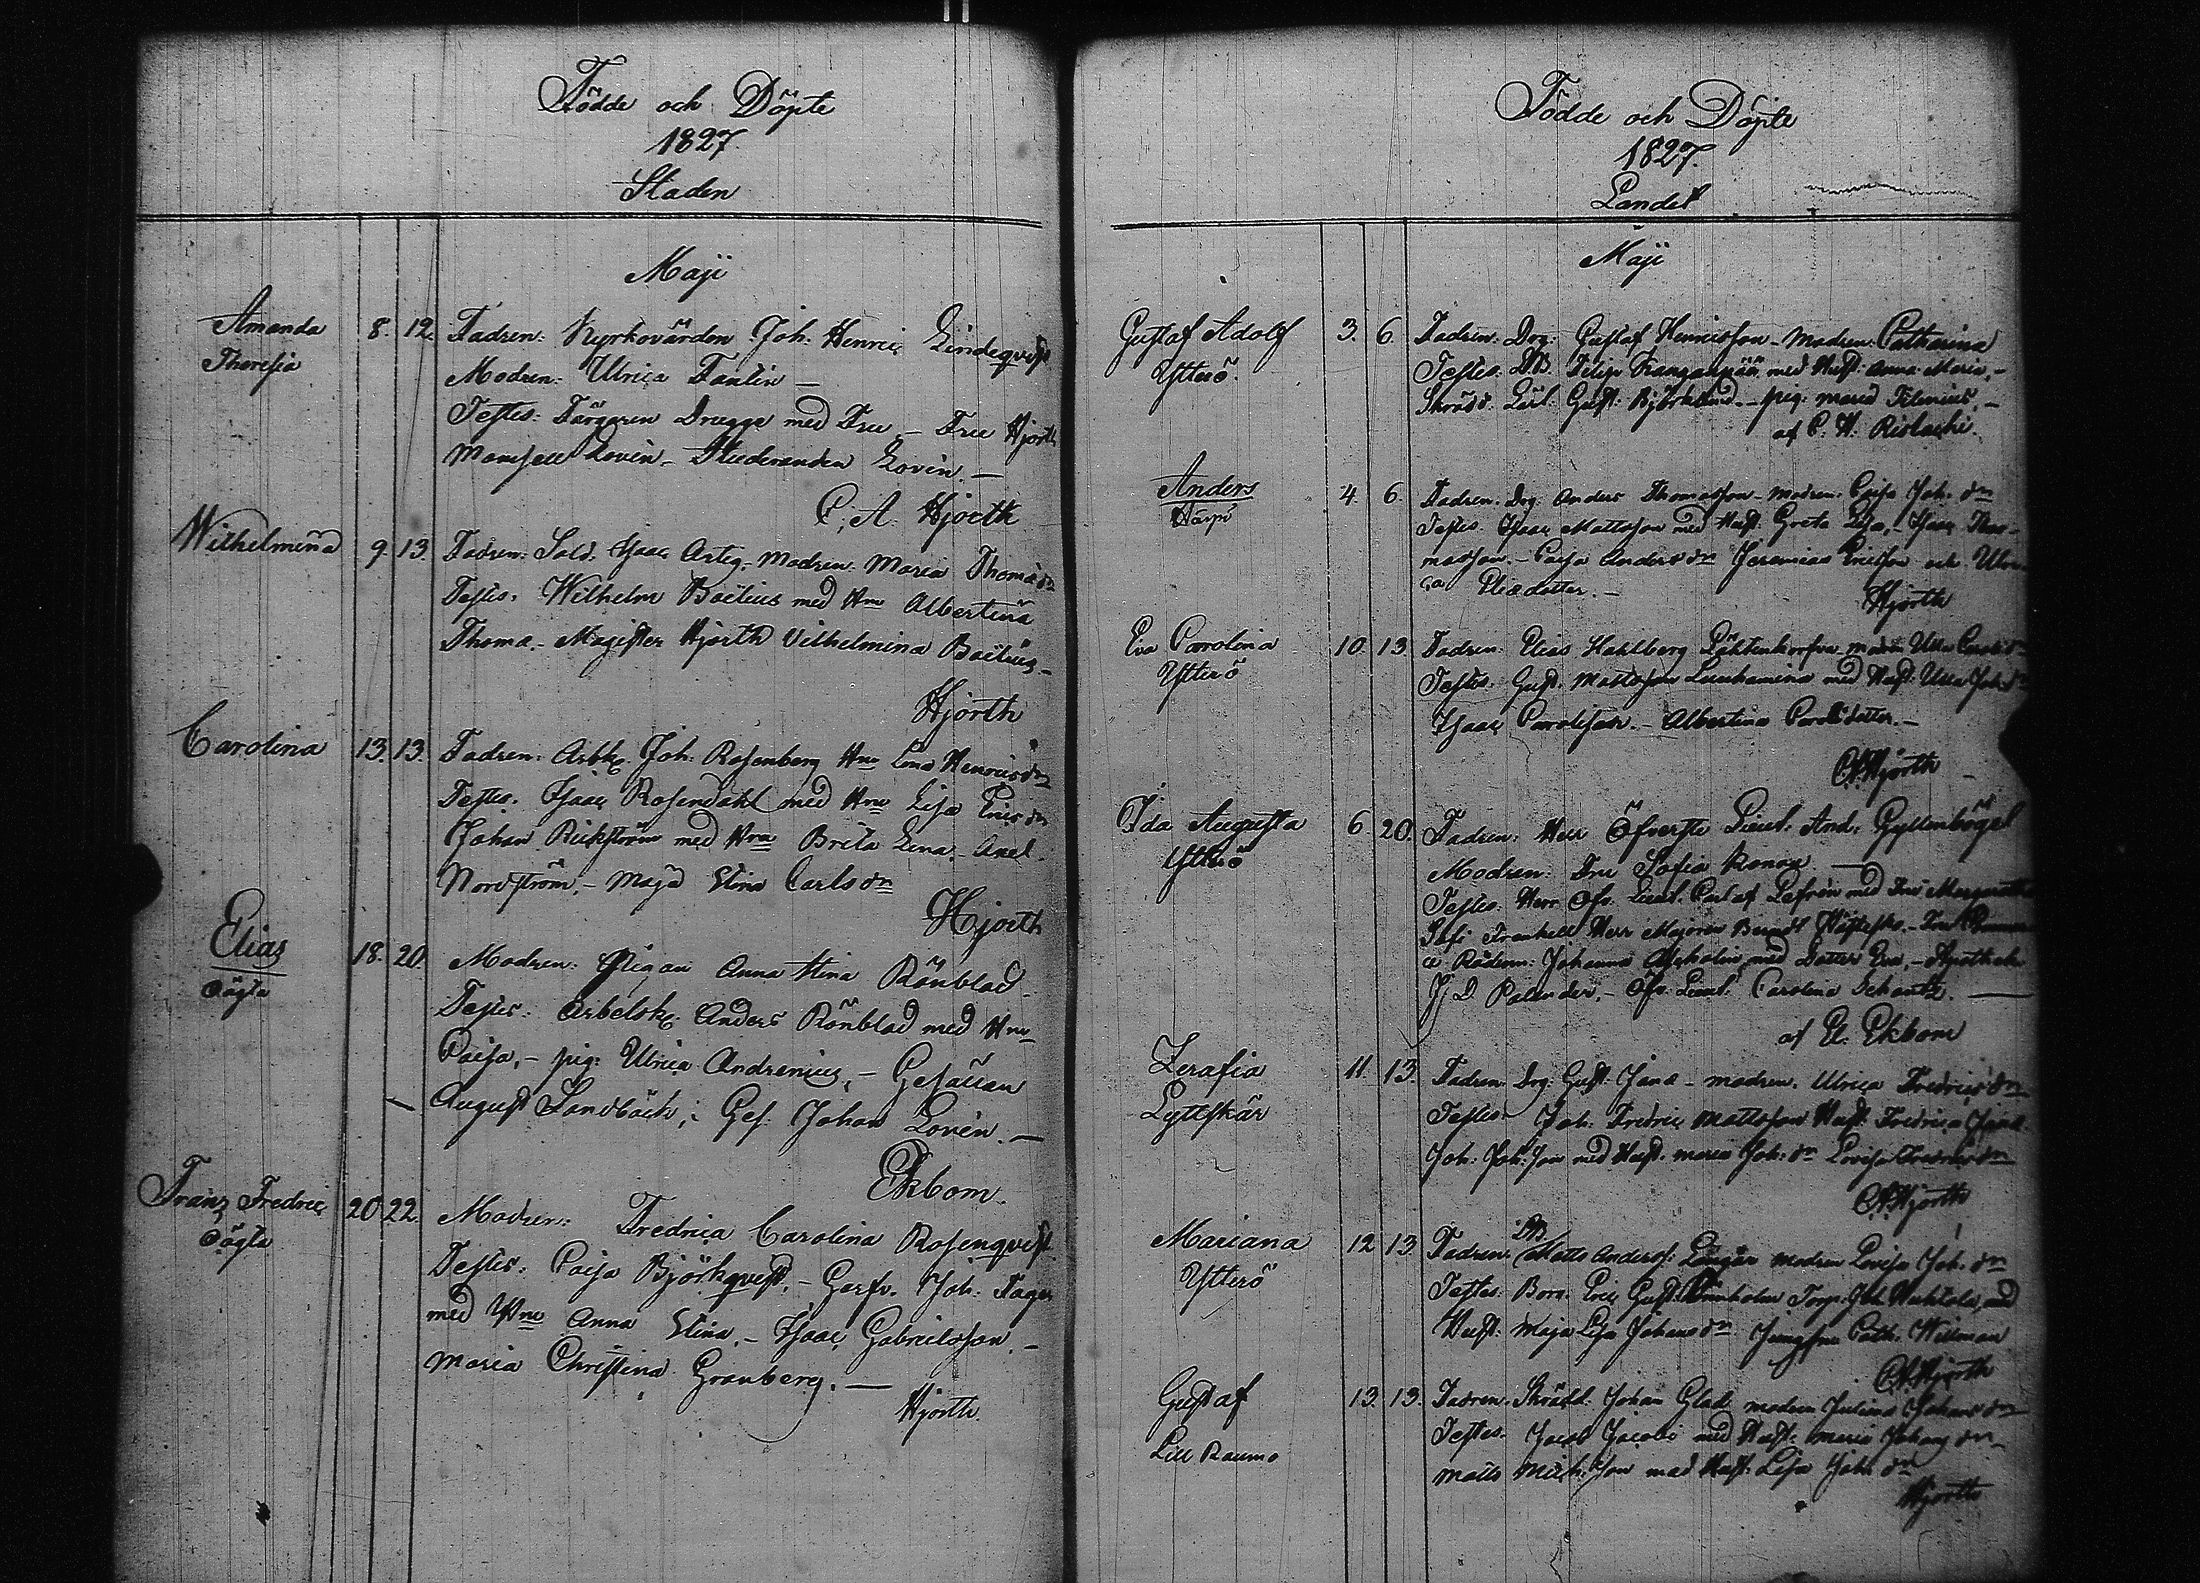 Födde och Döpte
1827.
Staden
Maji
Amanda Theresia 8. 12. Fadren: Kyrkovärden Joh: Henric Lindeqvist
Modren: Ulrica Fontin —
Testes: Färgaren Drugge med Fru – Fru Hjorth
Mamsell Lovén – Studeranden Lovén. —
C. A. Hjorth
Wilhelmina 9. 13. Fadren: Sold. Isaac Artig. Modren: Maria Thomædr
Testes: Wilhelm Boëlius med Hu Albertina
Thoma. – Magister Hjorth Vilhelmina Boëlius –
Hjorth
Carolina 13. 13. Fadren: Arbk. Joh: Rosenberg Hu Lena Henricsdr
Testes. Isaac Rosendahl med Hu Lisa Ericsdr
Johan Rickström med Hu Brita Lena – Axel
Nordström. – Maja Stina Carlsdr
Hjorth
Elias oägta 18. 20. Modren: Pigan Anna Stina Rönblad
Testes: Arbetsk. Anders Rönblad med Hu
Caisa, – pig: Ulrica Andrenius, – Gesällen
August Sandbäck, – Ges. Johan Lovén. —
Ekbom.
Franz Fredric oägta 20. 22. Modren: Fredrica Carolina Rosenqvist
Testes. Caisa Björkqvist, – Garfv. Joh: Fager
med Hu Anna Stina, – Isaac Gabrielsson. –
Maria Christina Granberg. —
Hjorth.
Födde och Döpte
1827.
Landet
Maji
Gustaf Adolf Ytterö. 3. 6. Fadren: Drg: Gustaf Henricsson – Modren: Catharina
Testes. DB. Filip Kangaspää med Hust: Anna Maria, –
Skrädd: Lärl. Gust: Björklund. – pig: Maria Filenius, –
af C. H. Rislachi.
Anders 4. 6. Fadren. Drg. Anders Thomasson – Modren: Caisa Joh: dr
Testes. Isaac Mattsson med Hust. Greta Lisa, – Isaac Tho-
masson. – Caisa Andersdr Jeremias Ericsson och Ulri-
ca Eliædotter. –
Hjorth
Eva Carolina Ytterö 10. 13. Fadren. Elias Hahlberg modren Ulla
Testes. Gust. Mattsson med Hust. Ulla Joh: dr
Isaac Carolisson. – Albertina Carolidotter. –
C. A. Hjorth
Ida Augusta Ytterö 6 20. Fadren: Herr Öfverste Lieut. And: Gyllenbögel
Modren: Fru Sofia Konow —
Testes. Herr Öfv. Lieut. Carl af Lefrén med Fru Margaretha
Sofi Frankell Herr Majoren Berndt
Rådm: Johanna med Dotter Eva, – Apothek.
J. D Palander. – Öfv. Lieut. Carolina Schantz. —
af El. Ekbom
Serafia Lyttskär 11. 13. Fadren Drg: Gust. Jana – modren. Ulrica Fredricsdr
Testes. Joh: Fredric Mattsson Hust. Fredrica
Joh: Joh: son med Hust. Maria Joh: dr Lovisa Fredricsdr
C. A. Hjorth
Mariana Ytterö 12 13. Fadren: DB. Matts Anderss: modren Lovisa Joh. dr
Testes. Bonn. Eric Gust: Torp. Joh. med
Hust: Maja Lisa Johansdr Jungfru Cath. Willman
C. A. Hjorth
Gustaf Lill Raumo 13. 13. Fadren. Skrädd. Johan Glad modren Julina Johansdr
Testes. Jacob Jacobi med Hust: Maria Johansdr –
Matts Mich: son med Hust: Lisa Joh: dr
Hjorth